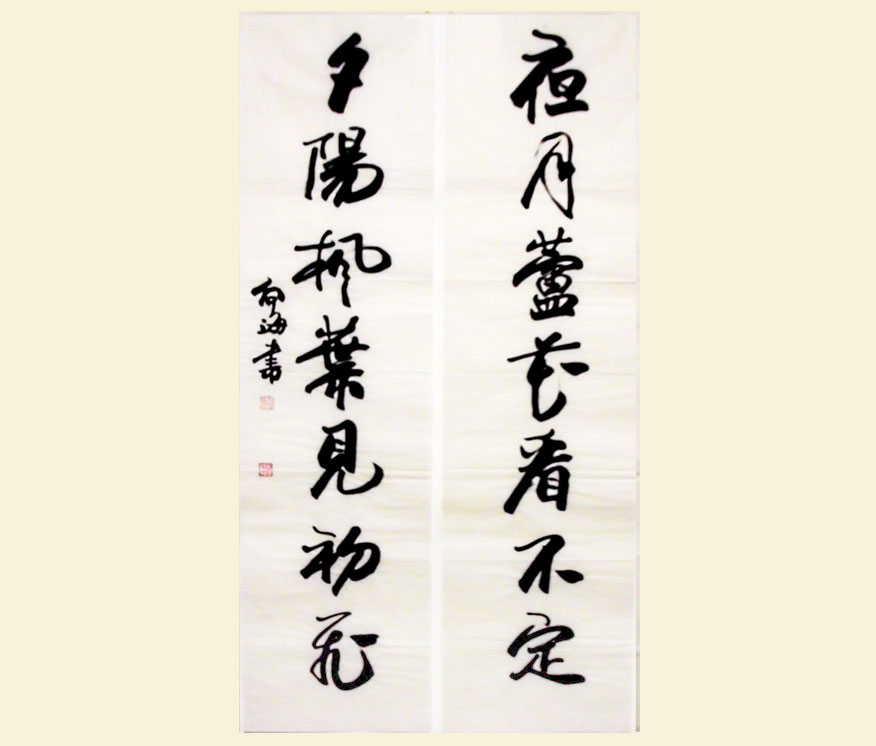 夜月蘆花看不定
夕陽楓葉見初飛
向海書